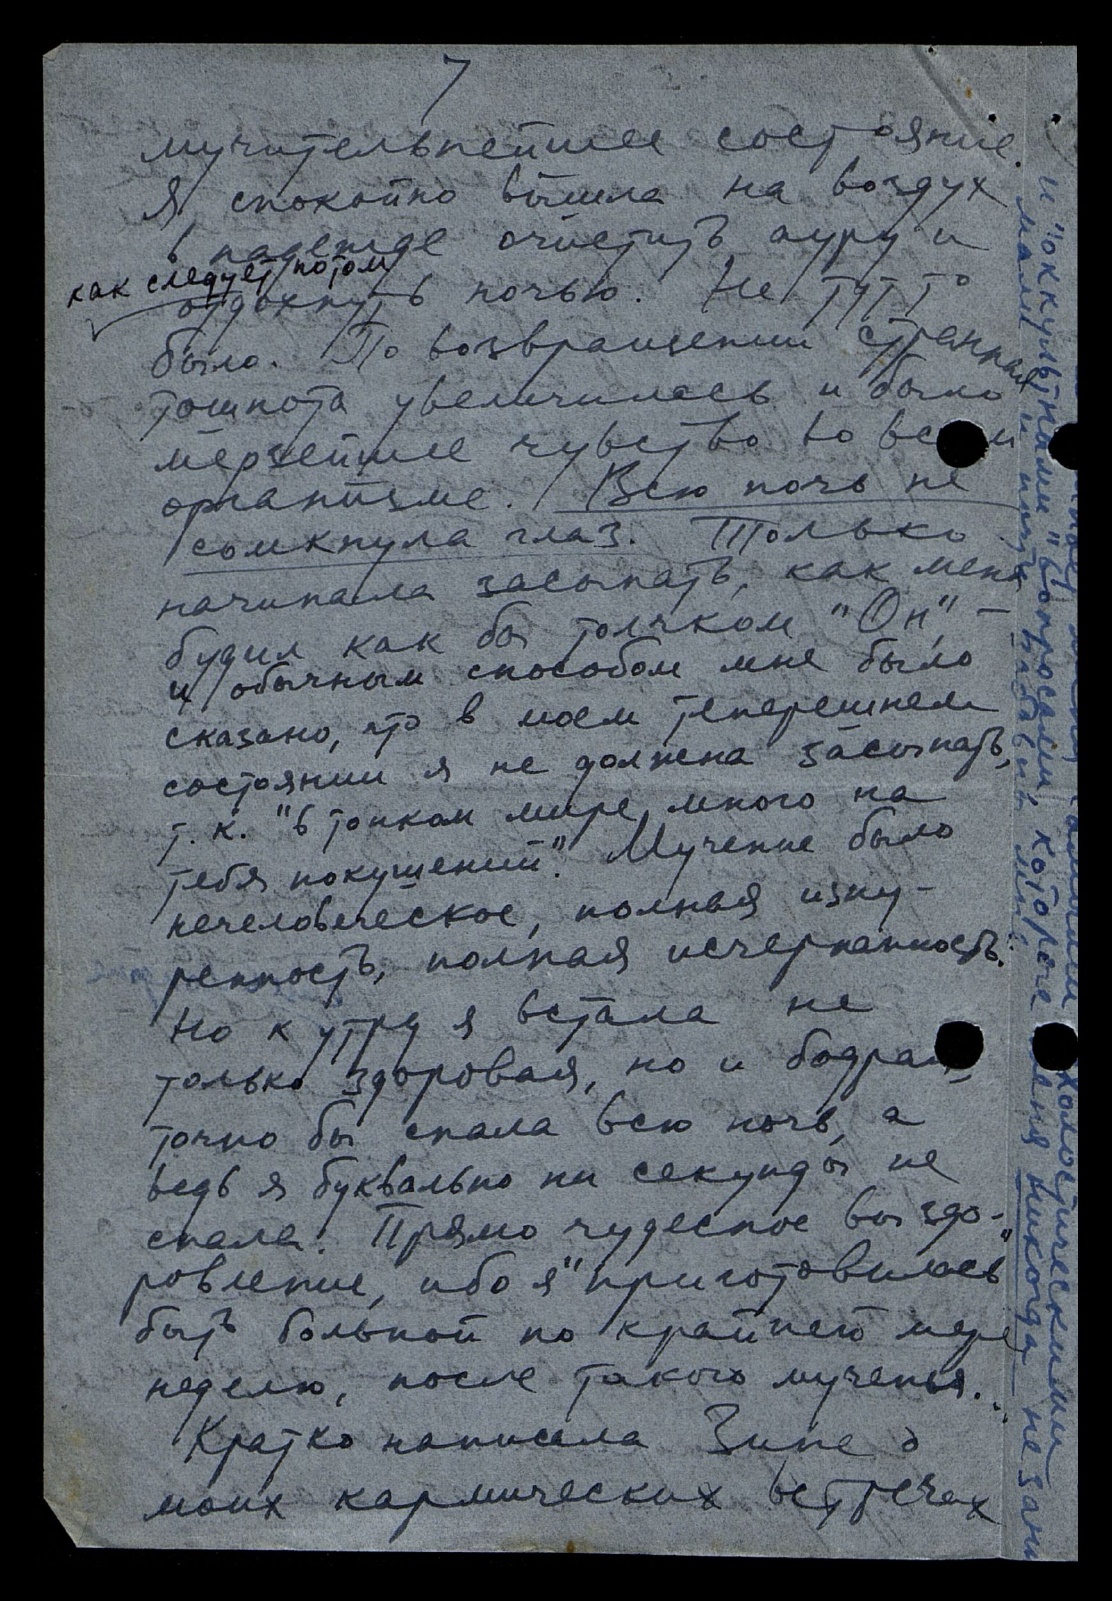 7
мучительнейшее состояние.
Я спокойно вышла на воздух
в надежде очистить ауру и
как следует потом
отдохнуть ночью. Не тут то
было. По возвращении странная
тошнота увеличилась и было
мерзейшее чувство во всем
организме. Всю ночь не
сомкнула глаз. Только
начинала засыпать, как меня
будил как бы толчком "Он", –
и обычным способом мне было
сказано, что в моем теперешнем
состоянии я не должна засыпать,
т.к. "в тонком мире много на
тебя покушений". Мученье было
нечеловеческое, полная изну-
ренность, полная исчерпанность.
Но к утру я встала не
только здоровая, но и бодрая,
точно бы спала всю ночь, а
ведь я буквально ни секунды не
спала. Прямо чудесное выздо-
ровление, ибо я "приготовилась"
быть больной по крайней мере
неделю, после такого мученья...
Кратко написала Зине о
моих кармических встречах
холостическими
и "оккультными" вопросами, которые
меня никогда не зани
мали и